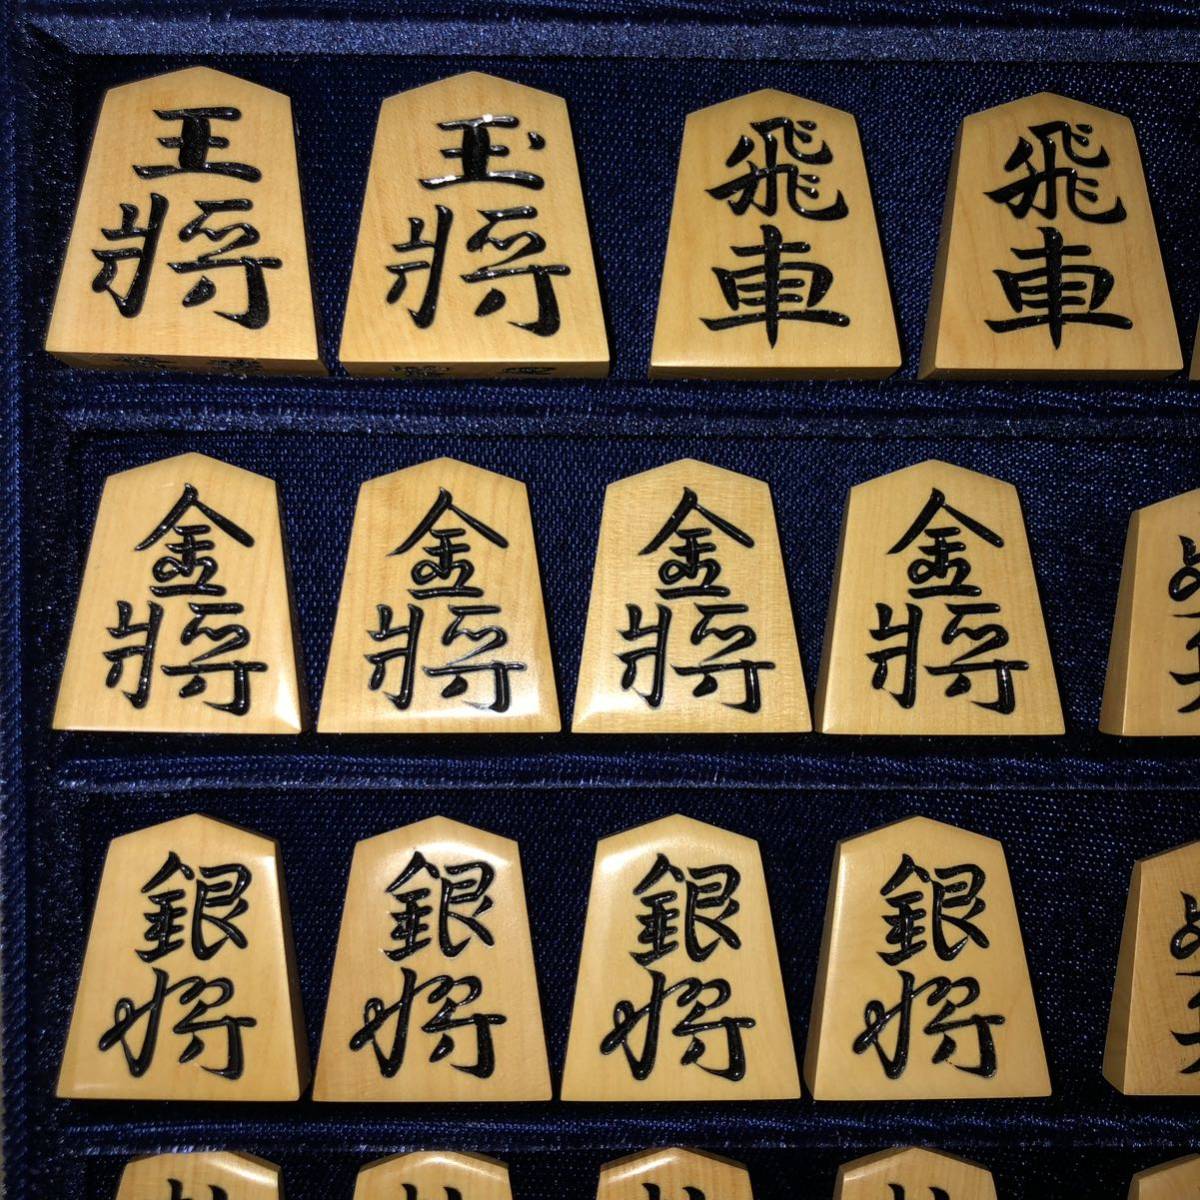 王將
玉將
飛車
飛車
金將
金將
金將
金將
銀将
銀将
銀将
銀将